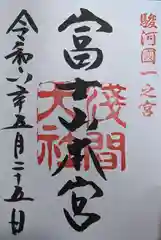 駿河國一之宮
富士山本宮
浅間
大社
令和六年五月二十五日